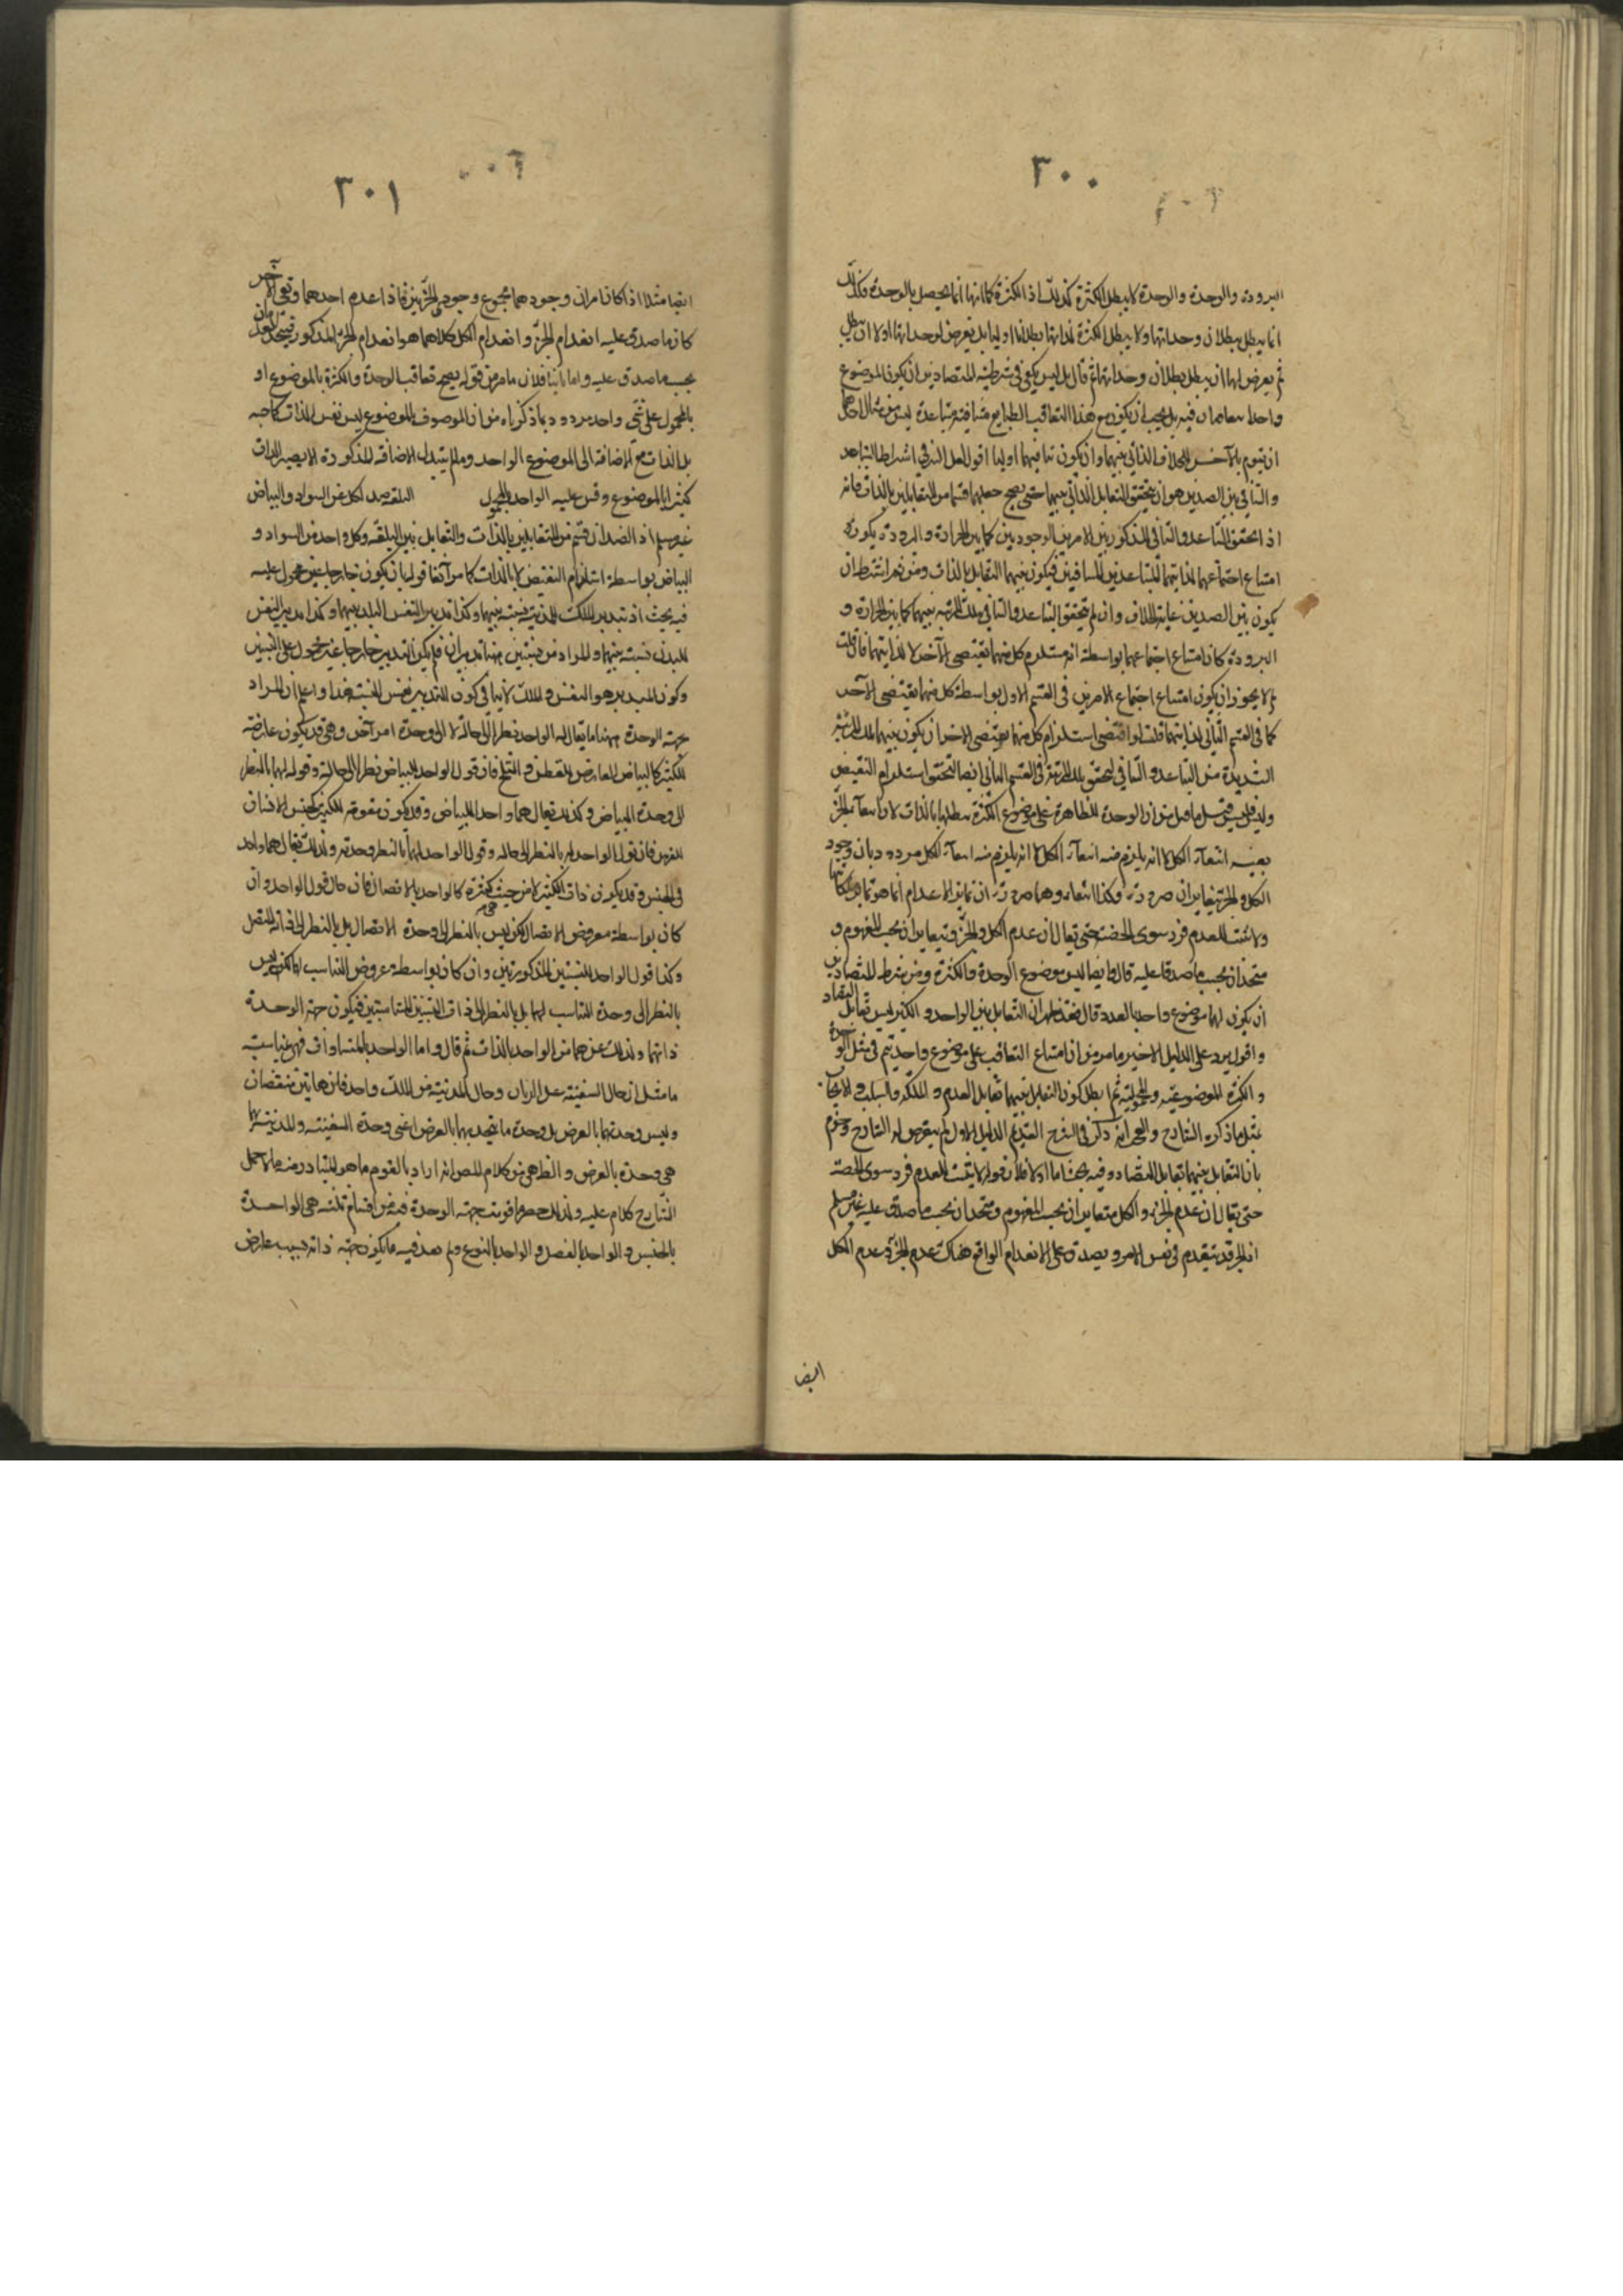 ٣٠٠
البرودة والوحدة والوحدة لا يبطل الكثرة كذلك اذ الكثرة كما انها انما يحصل بالوحدة فكذلك
انما يبطل ببطلان وحداتها ولا يبطل الكثرة لذاتها بطلانا اوليا بل يعرض لوحداتها اولا ان يبطل
ثم يعرض لها ان يبطل بطلان وحداتها ثم قال بل ليس يكفى في شرطية المتضادين ان يكون الموضوع
واحدا يتعاقبان فيه بل يجب ان يكون مع هذا التعاقب الطبايع متنافية متباعدة ليس من شان احدهما
ان يتقوم بالآخر للخلاف الذاتي بينهما وان يكون تنافيهما اوليا اقول لعل السر في اشتراط التباعد
والتنافي بين الضدين هو ان يتحقق التقابل الذاتي بينهما حتى يصح جعلهما قسما من المتقابلين بالذات فانه
اذا تحقق التباعد والتنافي المذكور بين الامرين الوجوديين كما بين الحرارة والبرودة يكون
امتناع اجتماعهما لذاتيهما المتباعدين المتنافيين فيكون بينهما التقابل بالذات ومن ثم اشترط ان
يكون بين الضدين غاية الخلاف وان لم يتحقق التباعد والتنافي بتلك المرتبة بينهما كما بين الحرارة و
البرودة كان امتناع اجتماعهما بواسطة انه مستلزم كل منهما نقيض الآخر لا لذاتيهما فان قلت
لم لا يجوز ان يكون امتناع اجتماع الامرين في القسم الاول بواسطة كل منهما نقيض الآخر
كما في القسم الثاني لذاتيهما قلت لو اقتضى استلزام كل منهما نقيض الاخر ان يكون بينهما تلك المرتبة
الشديدة من التباعد والتنافي لتحقق تلك المرتبة في القسم الثاني ايضا لتحقق استلزام النقيض
بعينه انتفاء الكل لا انه يلزم منه انتفاء الكل لا انه يلزم منه انتفاء الكل مردود بان وجود
الكل والجزء متغايران ضرورة وكذا انتفاءوهما ضرورة ان تمايز الاعدام انما هو بتمايز ملكاتها
ولا يثبت للعدم فرد سوى الحصة حتى يقال ان عدم الكل والجزء متغايران بحسب المفهوم و
متحدان بحسب ما صدقا عليه قال وايضا ليس موضوع الوحدة والكثرة ومن شرط المتضادين
ان يكون لهما موضوع واحد بالعدد قال فقد ظهر ان التقابل بين الواحد والكثير ليس تقابل التضاد
واقول يرد على الدليل الاخير ما مر من ان امتناع التعاقب على موضوع واحد يتم في مثل الوحدة
والكثرة الموضوعية والمحمولية ثم ابطل كون التقابل بينهما تقابل العدم والملكة والسلب والايجاب
بمثل ما ذكره الشارح والعجب انه ذكر في الشرح القديم الدليل الاول لم يتعرض له الشارح وجزم
بان التقابل بينهما تقابل التضاد وفيه بحث اما اولا فلان قوله لا يثبت للعدم فرد سوى الحصة
حتى يقال ان عدم الجزء والكل متغايران بحسب المفهوم ومتحدان بحسب ما صدق عليه غير مسلم
اذ الجزء قد ينعدم في نفس الامر ويصدق على الانعدام الواقع هناك عدم الجزء وعدم الكل
ايضا
٣٠١
ايضا مثلا اذا كان امران وجودهما مجموع وجودى الجزئين فاذا عدم احدهما وبقى الآخر
كان ما صدق عليه انعدام الجزء وانعدام الكل كلاهما هو انعدام الجزء المذكور فيتحد العدمان
بحسب ما صدق عليه واما ثانيا فلان ما مر من قوله يصح تعاقب الوحدة والكثرة بالموضوع او
بالمحمول على شئ واحد مردود بما ذكرناه من ان الموصوف بالموضوع ليس نفس الذات كما صه
بل الذات مع الاضافة الى الموضوع الواحد وما لم يتبدل الاضافة المذكورة لا يصير الذات
كثيرا بالموضوع وقس عليه الواحد بالمحمول البلقة ضد لكل من السواد والبياض
غير مسلم اذ الضدان قسم من المتقابلين بالذات والتقابل بين البلقة وكل واحد من السواد و
البياض بواسطة استلزام النقيض لا بالذات كما مر آنفا قوله بان يكون خارجا غير محمول عليه
فيه بحث اذ تدبير الملك للمدينة نسبة بينهما وكذا تدبير النفس البدن بينهما وكذا تدبير النفس
للبدن نسبة بينهما والمراد من نسبتين هنا تدبيران فلم يكن التدبير خارجا غير محمول على النسبتين
وكون المدبر هو النفس والملك لا ينافي كون التدبير نفس النسبة هذا واعلم ان المراد
بجهة الوحدة ههنا ما يقال له الواحد نظرا الى حاله لا الى وحدة امر آخر وهي قد يكون عارضة
للكثير كالبياض العارض للقطن والثلج فان قول الواحد للبياض نظرا الى حاله وقوله لهما بالنظر
الى وحدة البياض وكذلك يقال هما واحد بالبياض وقد يكون مقومة للكثير كجنس الانسان
والفرس فان قول الواحد له بالنظر الى حاله وقول الواحد لهما بالنظر وحدته ولذلك يقال هما واحد
في الجنس وقد يكون ذات الكثير لا من حيث هي كثرة كالواحد بالاتصال فان حال قول الواحد وان
كان بواسطة معروض الاتصال لكن ليس بالنظر الى وحدة الاتصال بل بالنظر الى ذات المتصل
وكذا قول الواحد للنسبتين المذكورتين وان كان بواسطة عروض التناسب لهما لكن ليس
بالنظر الى وحدة التناسب لهما بل بالنظر الى ذات النسبتين المتناسبتين فيكون جهة الوحدة
ذاتهما ولذلك عن هما من الواحد بالذات ثم قال واما الواحد بالمتساوات فهى مناسبة
ما مثل ان حال السفينة عند الربان وحال المدينة من الملك واحد فان هاتين متفقتان
وليس وحدتهما بالعرض بل وحدة ما يتحد بهما بالعرض اعنى وحدة السفينة والمدينة بهما
هي وحدة بالعرض والظ هي من كلام المص انه اراد بالمقوم ما هو المتبادر منه ما لا حمل
الشارح كلام عليه ولذلك حصر ما قويت جهة الوحدة فيه في اقسام ثلثة هى الواحدة
بالجنس والواحد بالفصل والواحد بالنوع ولم يعد فيه ما يكون جهة ذاته بسبب عارض